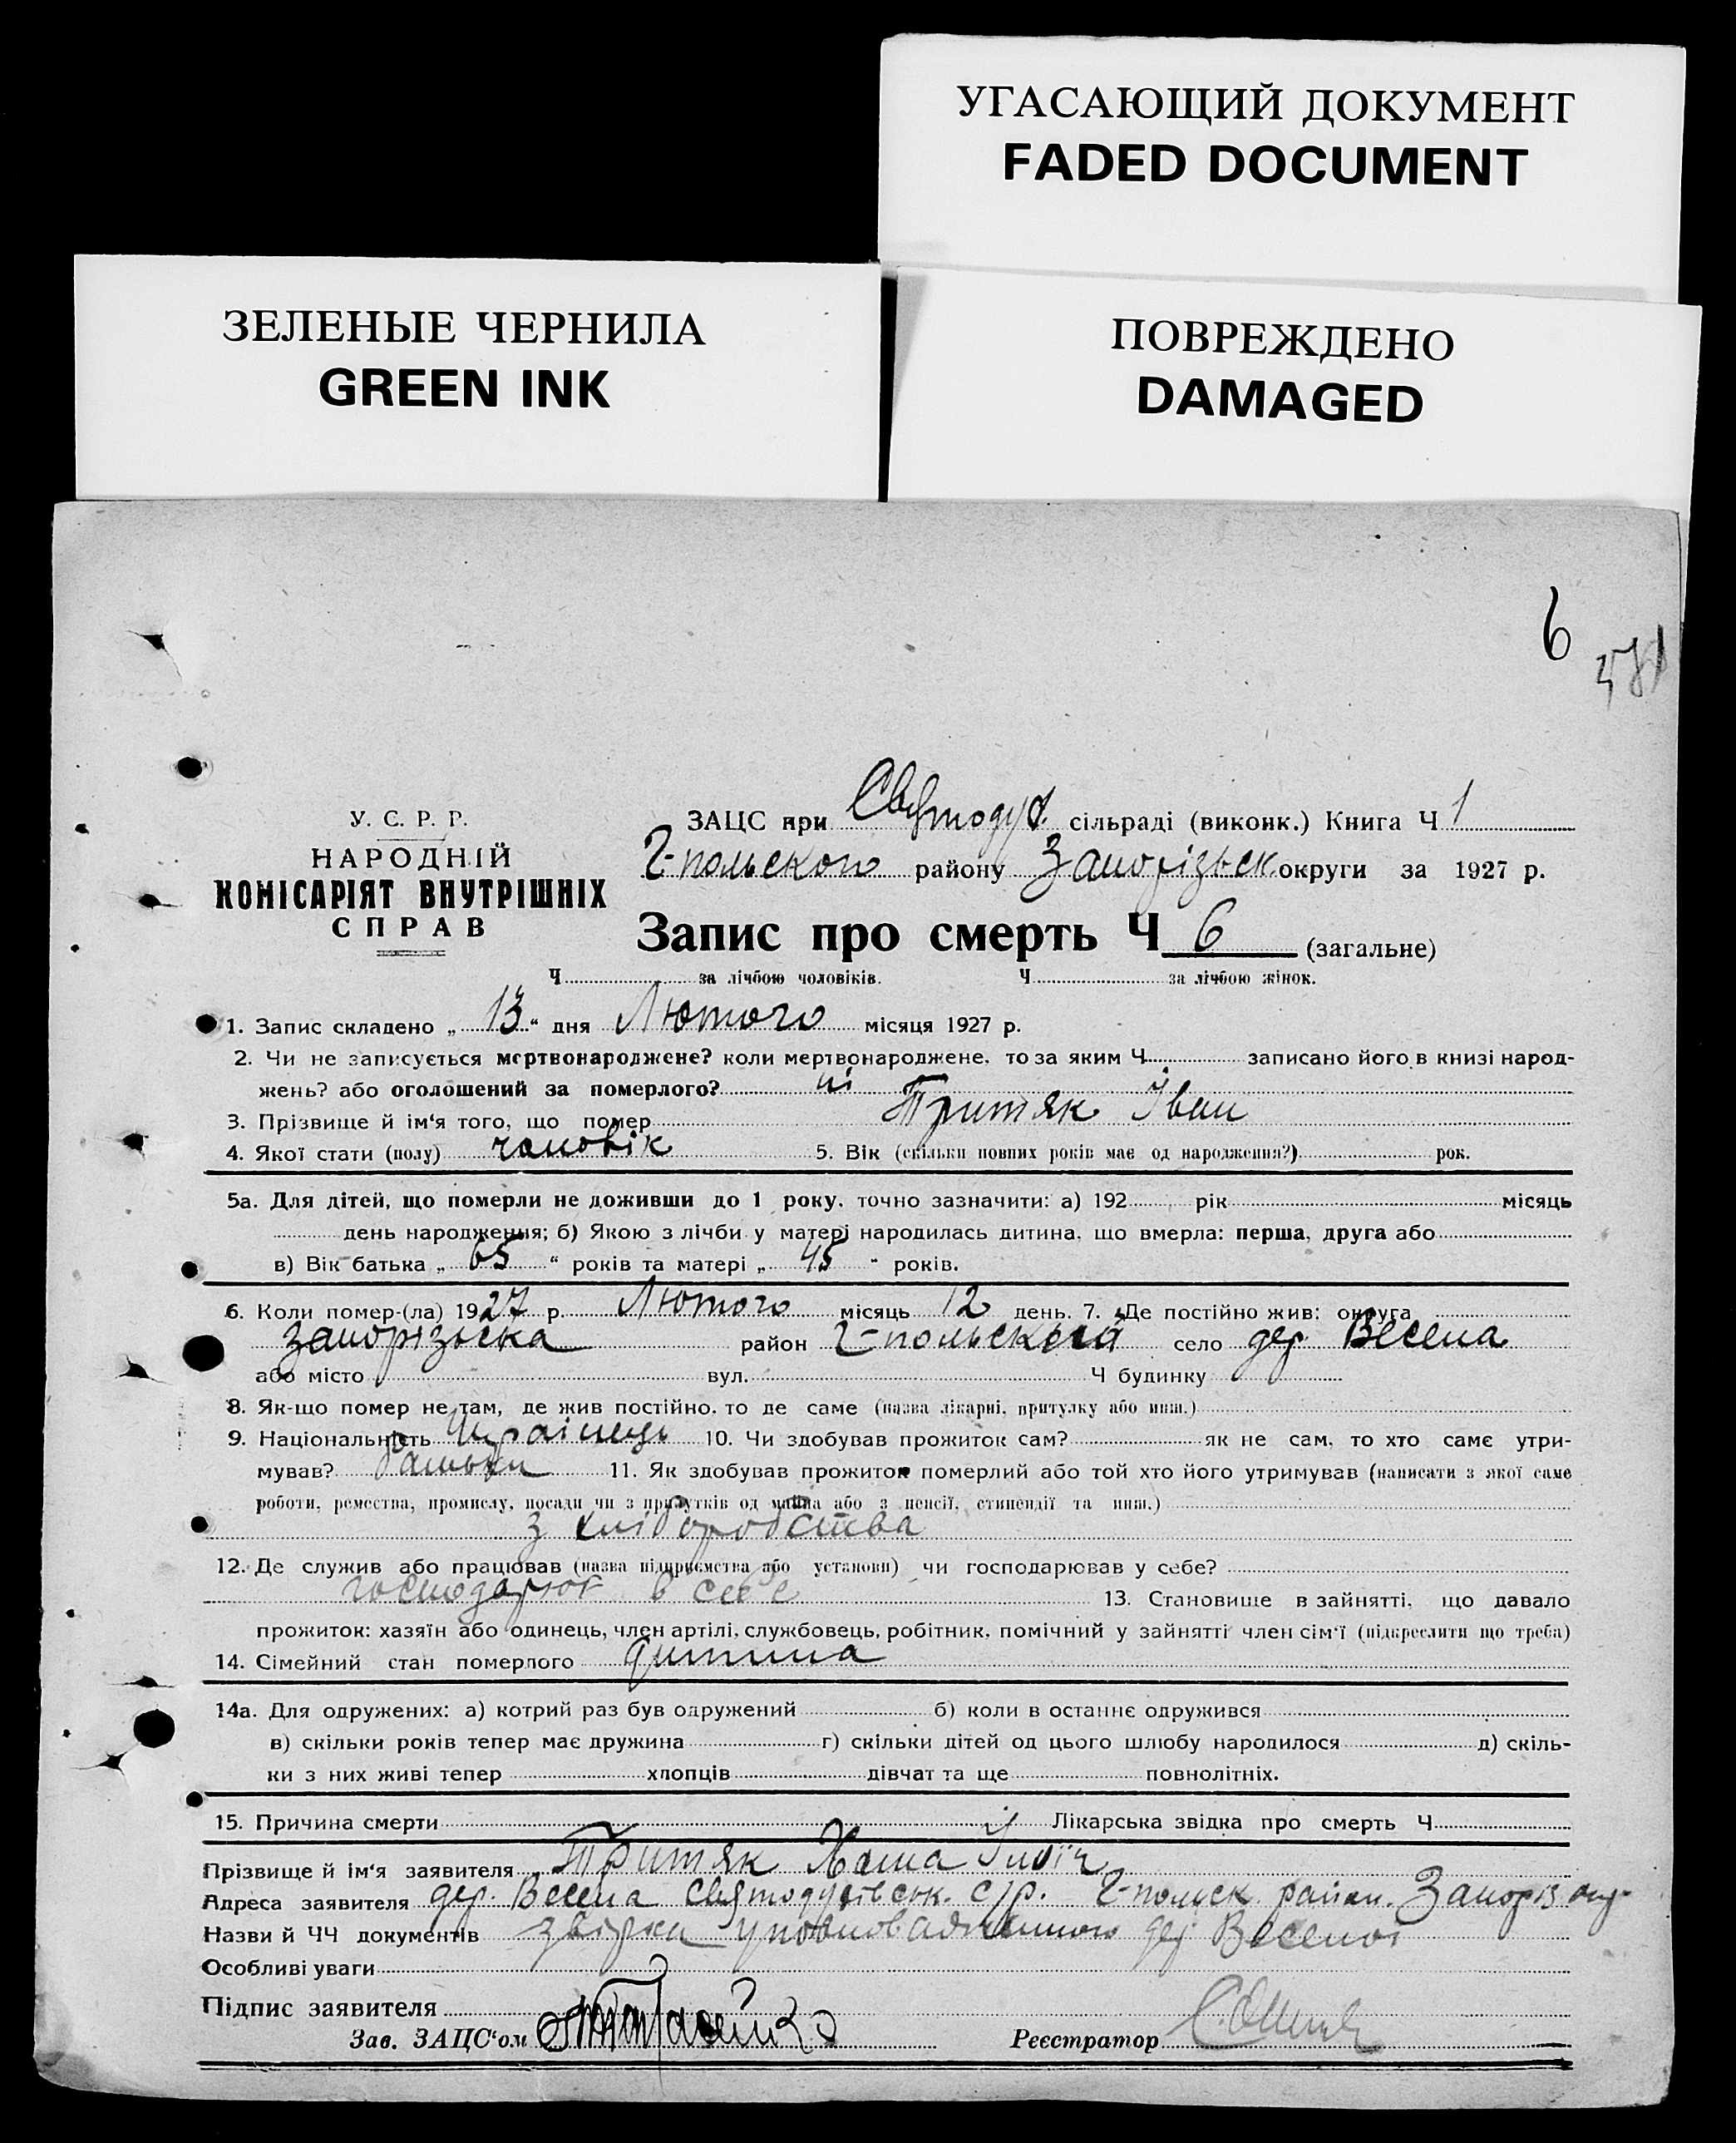 УГАСАЮЩИЙ ДОКУМЕНТ
FADED DOCUMENT
ЗЕЛЕНЫЕ ЧЕРНИЛА
GREEN INK
ПОВРЕЖДЕНО
DAMAGED
6
У. С. Р. Р.
НАРОДНІЙ
КОМІСАРІЯТ ВНУТРІШНІХ
СПРАВ
ЗАЦС при Святодух. сільраді (виконк.) Книга Ч 1
Г-польского району Запорізьск округи за 1927 р.
Запис про смерть Ч 6 (загальне)
Ч за лічбою чоловіків. Ч за лічбою жінок.
1. Запис складено „ 13 “ дня Лютого місяця 1927 р.
2. Чи не записується мертвонароджене? коли мертвонароджене, то за яким Ч записано його в книзі народ-
жень? або оголошений за померлого? ні
3. Прізвище й ім‘я того, що помер Притяк Іван
4. Якої стати (полу) чоловік 5. Вік (скільки повних років має од народження?) рок.
5а. Для дітей, що померли не доживши до 1 року, точно зазначити: а) 192 рік місяць
день народження; б) Якою з лічби у матері народилась дитина, що вмерла: перша, друга або
в) Вік батька „ 65 “ років та матері „ 45 “ років.
6. Коли помер-(ла) 1927 р. Лютого місяць 12 день. 7. Де постійно жив: округа
Запорізьска район Г-польский село дер Весела
або місто вул. Ч будинку
8. Як-що помер не там, де жив постійно, то де саме (назва лікарні, притулку або инш.)
9. Національність Українець 10. Чи здобував прожиток сам? як не сам, то хто саме утри-
мував? Батьки 11. Як здобував прожиток померлий або той хто його утримував (написати з якої саме
роботи, ремества, промислу, посади чи з прибутків од майна або з пенсії, стипендії та инш.)
з хліборобства
12. Де служив або працював (назва підприємства або установи) чи господарював у себе?
господарює в себе 13. Становище в зайнятті, що давало
прожиток: хазяїн або одинець, член артілі, службовець, робітник, помічний у зайнятті член сім‘ї (підкреслити що треба)
14. Сімейний стан померлого дитина
14а. Для одружених: а) котрий раз був одружений б) коли в останнє одружився
в) скільки років тепер має дружина г) скільки дітей од цього шлюбу народилося д) скіль-
ки з них живі тепер хлопців дівчат та ще повнолітніх.
15. Причина смерти Лікарська звідка про смерть Ч
Прізвище й ім‘я заявителя Притяк
Адреса заявителя дер. Весела Святодухівськ. с/р. Г-польск. район. Запоріз окр.
Назви й ЧЧ документів звірка уповноваженного дер Веселої
Особливі уваги
Підпис заявителя
Зав. ЗАЦС‘ом
Реєстратор